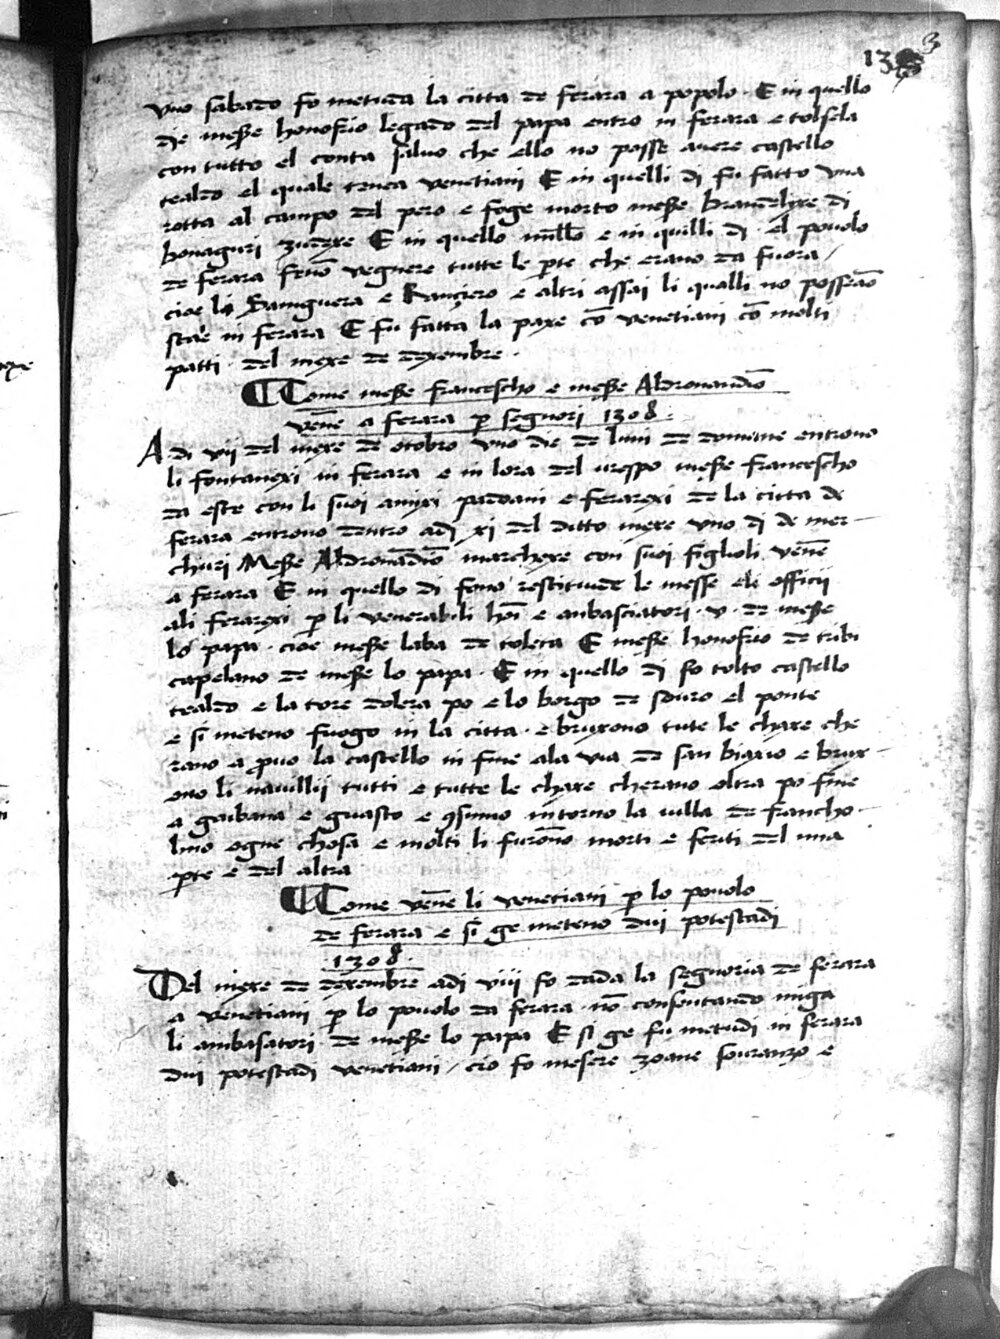 133
uno sabado fo metuda la citta de ferara a popolo · E in quello
die meße honofrio legado del papa entro in ferara e tolsela
con tutto el conta saluo che ello no posse auere castello
tealdo el quale tenea venetiani E in quelli di fu fatto una
rotta al campo del pero e foge morto meße brandelixe di
bonaguri zudexe E in quello e in quilli di · el pouolo
de ferara feno vegnere tutte le pte che erano da fuora /
cioe li Saninguera e Ranziero e altri assai li qualli no possea͞o
stare in ferara E fu fatta la paxe co͞ venetiani co͞ molti
patti · del mexe de dexembre ·
Come meße francescho e meße Aldrouandi͞o
ve͞ne a ferara p segnori 1308 ·
A di vii del mexe de otobro uno die de luni da domane entrono
li fontanexi in ferara e in lora del uespo meße francescho
da este con li suoi amixi padoani e ferarexi de la citta de
ferara entrono dentro adi xi del ditto mexe uno di de mer
churi Meße Aldrouãdi͞o marchexe con suoi figlioli ve͞ne
a ferara E in quello di fono restituide le messe eli officii
ali ferarexi p li venerabili ho͞i e anbasciatori · v · de meße
lo papa · cioe meße laba de toleta E meße honofrio de tribi
capelano de meße lo papa · E in quello di fo tolto castello
tealdo e la tore dolera po e lo borgo de sduro el ponte
e si meteno fuogo in la citta · e bruxono tute le chaxe che
rano a pruo la castello in fine ala via de san biaxio e brux
ono li nauilij tutti e tutte le chaxe cherano oltra po fine
a gaibana e guasto e ꝯsumo intorno la uilla de francho
lino ogne chosa e molti li furo͞no morti e feriti del una
pte e del altra
Come ve͞ne li venetiani p lo pouolo
de ferara e si ge meteno dui potestadi
1308 ·
Del mexe de dexembre adi viii fo dada la segnoria de ferara
a venetiani p lo pouolo da ferara · no͞ consentando miga
li ambasatori de meße lo papa E si ge fu metudi in ferara
dui potestadi venetiani / cio fo mesere zoane souranzo e